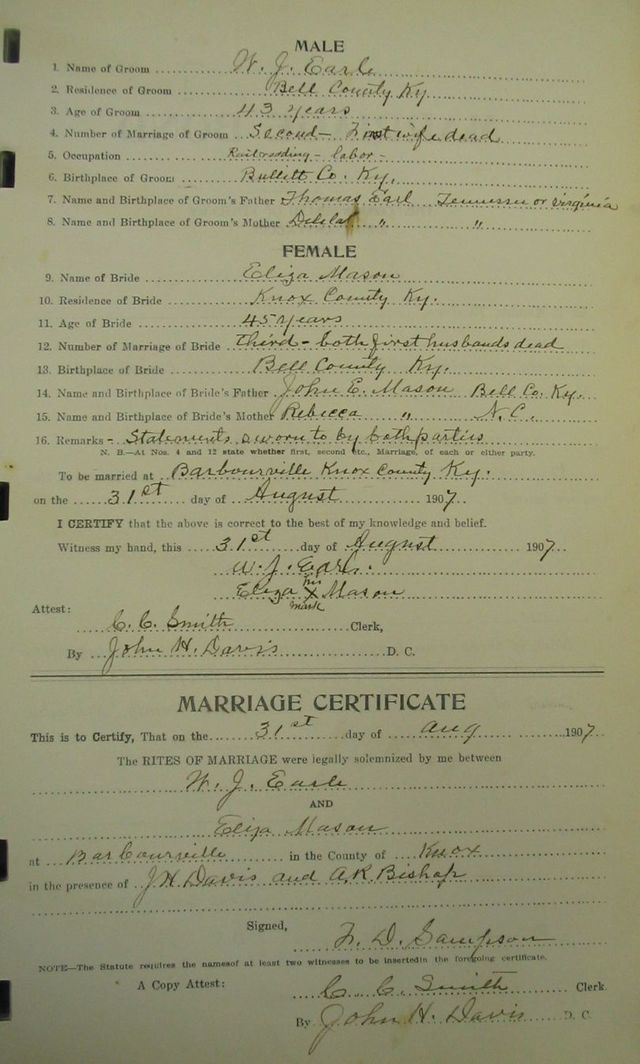 MALE
1. Name of Groom W. J. Earle
2. Residence of Groom Bell County Ky.
3. Age of Groom 43 years
4. Number of Marriage of Groom Second - First wife dead
5. Occupation Railroading - labor -
6. Birthplace of Groom Bullitt Co. Ky.
7. Name and Birthplace of Groom's Father Thomas Earl Tennessee or Virginia
8. Name and Birthplace of Groom's Mother " "
FEMALE
9. Name of Bride Eliza Mason
10. Residence of Bride Knox County Ky.
11. Age of Bride 45 years
12. Number of Marriage of Bride third - both first husbands dead
13. Birthplace of Bride Bell County Ky.
14. Name and Birthplace of Bride's Father John E. Mason Bell Co. Ky.
15. Name and Birthplace of Bride's Mother Rebecca " N.C.
16. Remarks - Statements sworn to by both parties
N. B.—At Nos. 4 and 12 state whether first, second etc., Marriage, of each or either party.
To be married at Barbourville Knox County Ky.
on the 31st day of August 1907
I CERTIFY that the above is correct to the best of my knowledge and belief.
Witness my hand, this 31st day of August 1907
W. J. Earle.
Eliza his X mark Mason
Attest:
C. C. Smith Clerk,
By John H. Davis D. C.
MARRIAGE CERTIFICATE
This is to Certify, That on the 31st day of Aug 1907
The RITES OF MARRIAGE were legally solemnized by me between
W. J. Earle
AND
Eliza Mason
at Barbourville in the County of Knox
in the presence of J H Davis and A. K. Bishop
Signed,
F. D. Sampson
NOTE—The Statute requires the names of at least two witnesses to be inserted in the foregoing certificate.
A Copy Attest: C C. Smith Clerk
By John H. Davis D. C.